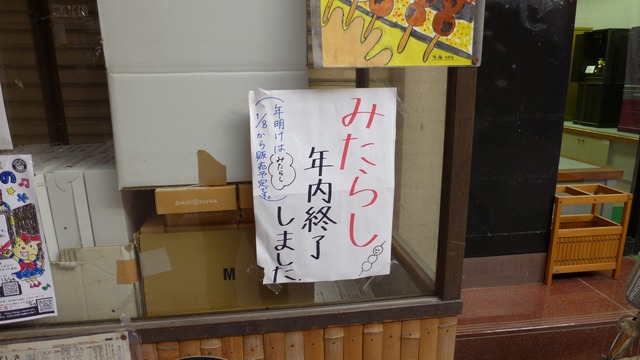 みたらし
年内終了
しました。
(年明けは みたらし
1/8から販売予定です。)
DAIKOKUYA
M
の